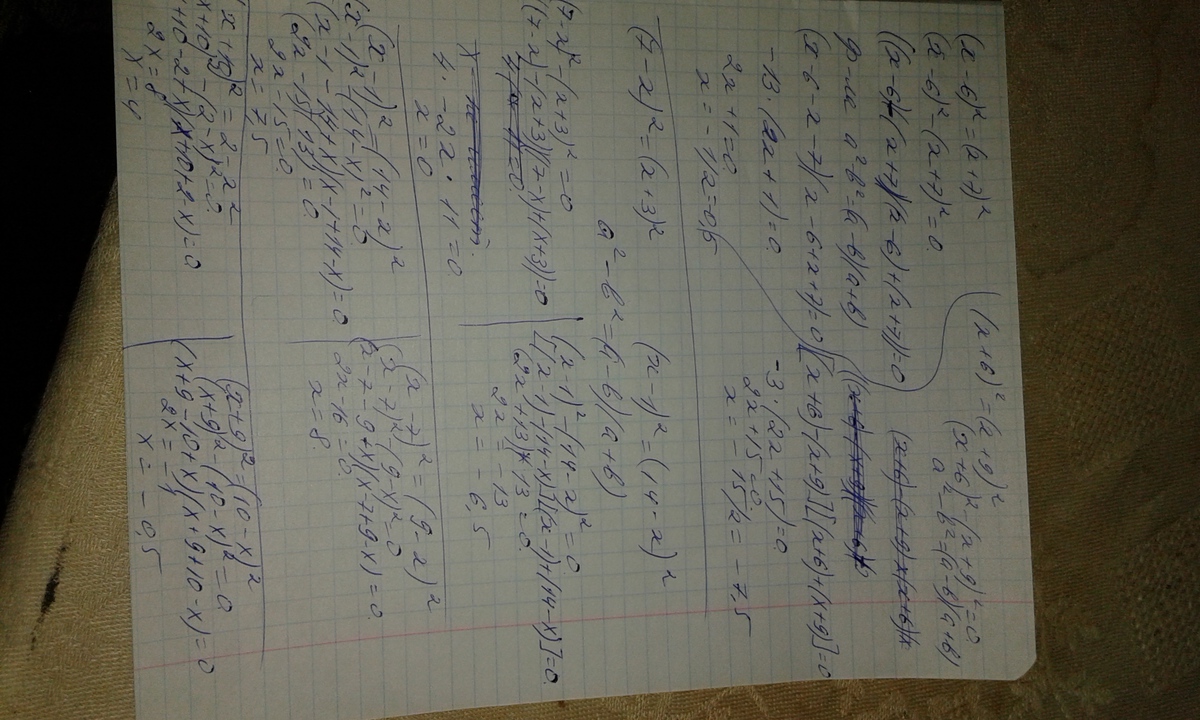 (x-6)²=(x+7)²
(x-6)²-(x+7)²=0
(x-6)-(x+7)(x-6)+(x+7)=0
ф-ла a²-b²=(a-b)(a+b)
(x-6-x-7)(x-6+x+7)=0
-13·(2x+1)=0
2x+1=0
x=-1/2=-0,5
(x+6)²=(x+9)²
(x+6)²-(x+9)²=0
a²-b²=(a-b)(a+b)
[(x+6)-(x+9)][(x+6)+(x+9)]=0
-3·(2x+15)=0
2x+15=0
x=-15/2=-7,5
(7-x)²=(x+3)²
a²-b²=(a-b)(a+b)
(7-x)²-(x+3)²=0
(7-x)-(x+3)(7-x)+(x+3)=0
4·-2x·11=0
x=0
(x-1)²=(14-x)²
(x-1)²-(14-x)²=0
[(x-1)-(14-x)][(x-1)+(14-x)]=0
2x+13)·13=0
2x=-13
x=-6,5
(x-1)²=(14-x)²
(x-1)²-(14-x)²=0
(x-1-14+x)(x-1+14-x)=0
(2x-15)(13)=0
2x-15=0
x=7,5
(x-7)²=(9-x)²
(x-7)²-(9-x)²=0
(x-7-9+x)(x-7+9-x)=0
2x-16=0
x=8
=0
2x=8
x=4
(x+9)²=(10-x)²
(x+9)²-(10-x)²=0
(x+9-10+x)(x+9+10-x)=0
2x=-1
x=-0,5